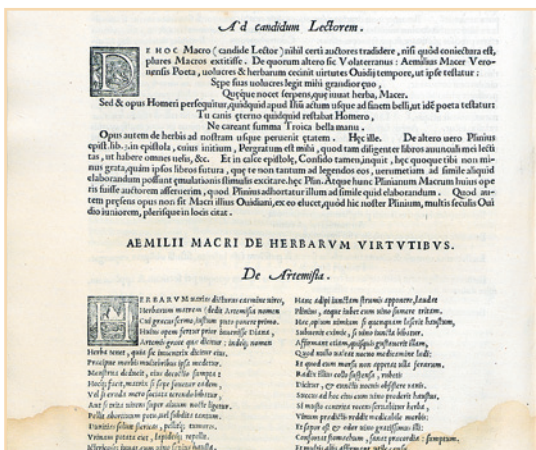 Ad candidum Lectorem.
DE HOC Macro (candide Lector) nihil certi auctores tradidere, nisi quòd coniectura est,
plures Macros extitisse. De quorum altero sic Volaterranus: Aemilius Macer Vero-
nensis Poeta, uolucres & herbarum cecinit uirtutes Ouidij tempore, ut ipse testatur:
Sępe suas uolucres legit mihi grandior ęuo,
Quęque nocet serpens, quę iuuat herba, Macer.
Sed & opus Homeri persequitur, quidquid apud Iliũ actum usque ad finem belli, ut idẽ poeta testatur:
Tu canis ęterno quidquid restabat Homero,
Ne careant summa Troica bella manu.
Opus autem de herbis ad nostram usque peruenit ętatem. Hęc ille. De altero uero Plinius
epist. lib. 3. in epistola, cuius initium, Pergratum est mihi, quod tam diligenter libros auunculi mei lecti
tas, ut habere omnes uelis, &c. Et in calce epistolę, Confido tamen, inquit, hęc quoque tibi non mi-
nus grata, quàm ipsos libros futura, quę te non tantum ad legendos eos, uerumetiam ad simile aliquid
elaborandum possunt ęmulationis stimulis excitare. hęc Plin. Atque hunc Plinianum Macrum huius ope
ris fuisse auctorem asseuerim, quod Plinius adhortatur illum ad simile quid elaborandum. Quod au-
tem pręsens opus non sit Macri illius Ouidiani, ex eo elucet, quòd hic noster Plinium, multis seculis Oui
dio iuniorem, plerisque in locis citat.
AEMILII MACRI DE HERBARVM VIRTVTIBVS.
De Artemisia.
HERBARVM uarias dicturus carmine uires,
Herbarum matrem dedit Artemisia nomen
Cui græcus sermo, iustum puto ponere primo.
Huius opem fertur prior inuenisse Diana,
Artemis græce quæ dicitur: indeq; nomen
Herba tenet, quia sic inuentrix dicitur eius.
Præcipue morbis muliebribus ipsa medetur.
Menstrua deducit, eius decoctio sumpta:
Hoc & facit, matrix si sæpe foueatur eadem,
Vel si cruda mero sociata terendo bibatur,
Aut si trita uirens super aluum nocte ligetur.
Pellit abortiuum potu, uel subdita tantum.
Durities soluit stericas, pellitq; tumores.
Vrinam potata ciet, lapidesq; repellit.
Hanc adipi iunctam strumis apponere, laudat
Plinius, atque iubet cum uino sumere tritam.
Hæc, opium nimium si quenquam læserit haustum,
Subuenit eximie, si uino iuncta bibatur.
Affirmant etiam, quisquis gestauerit illam,
Quod nulla ualeat nocuo medicamine lædi:
Et quod eum morsu non appetat ulla ferarum.
Radix illius collo suspensa, rubetis
Dicitur, & cunctis nocuis obsistere ranis.
Succus ad hoc eius cum uino proderit haustus.
Si mosto coniecta recens seruabitur herba,
Vinum prædicti reddit medicabile morbis:
Et sapor est & odor uino gratissimus illi:
Confortat stomachum, sanat præcordia: sumptum.